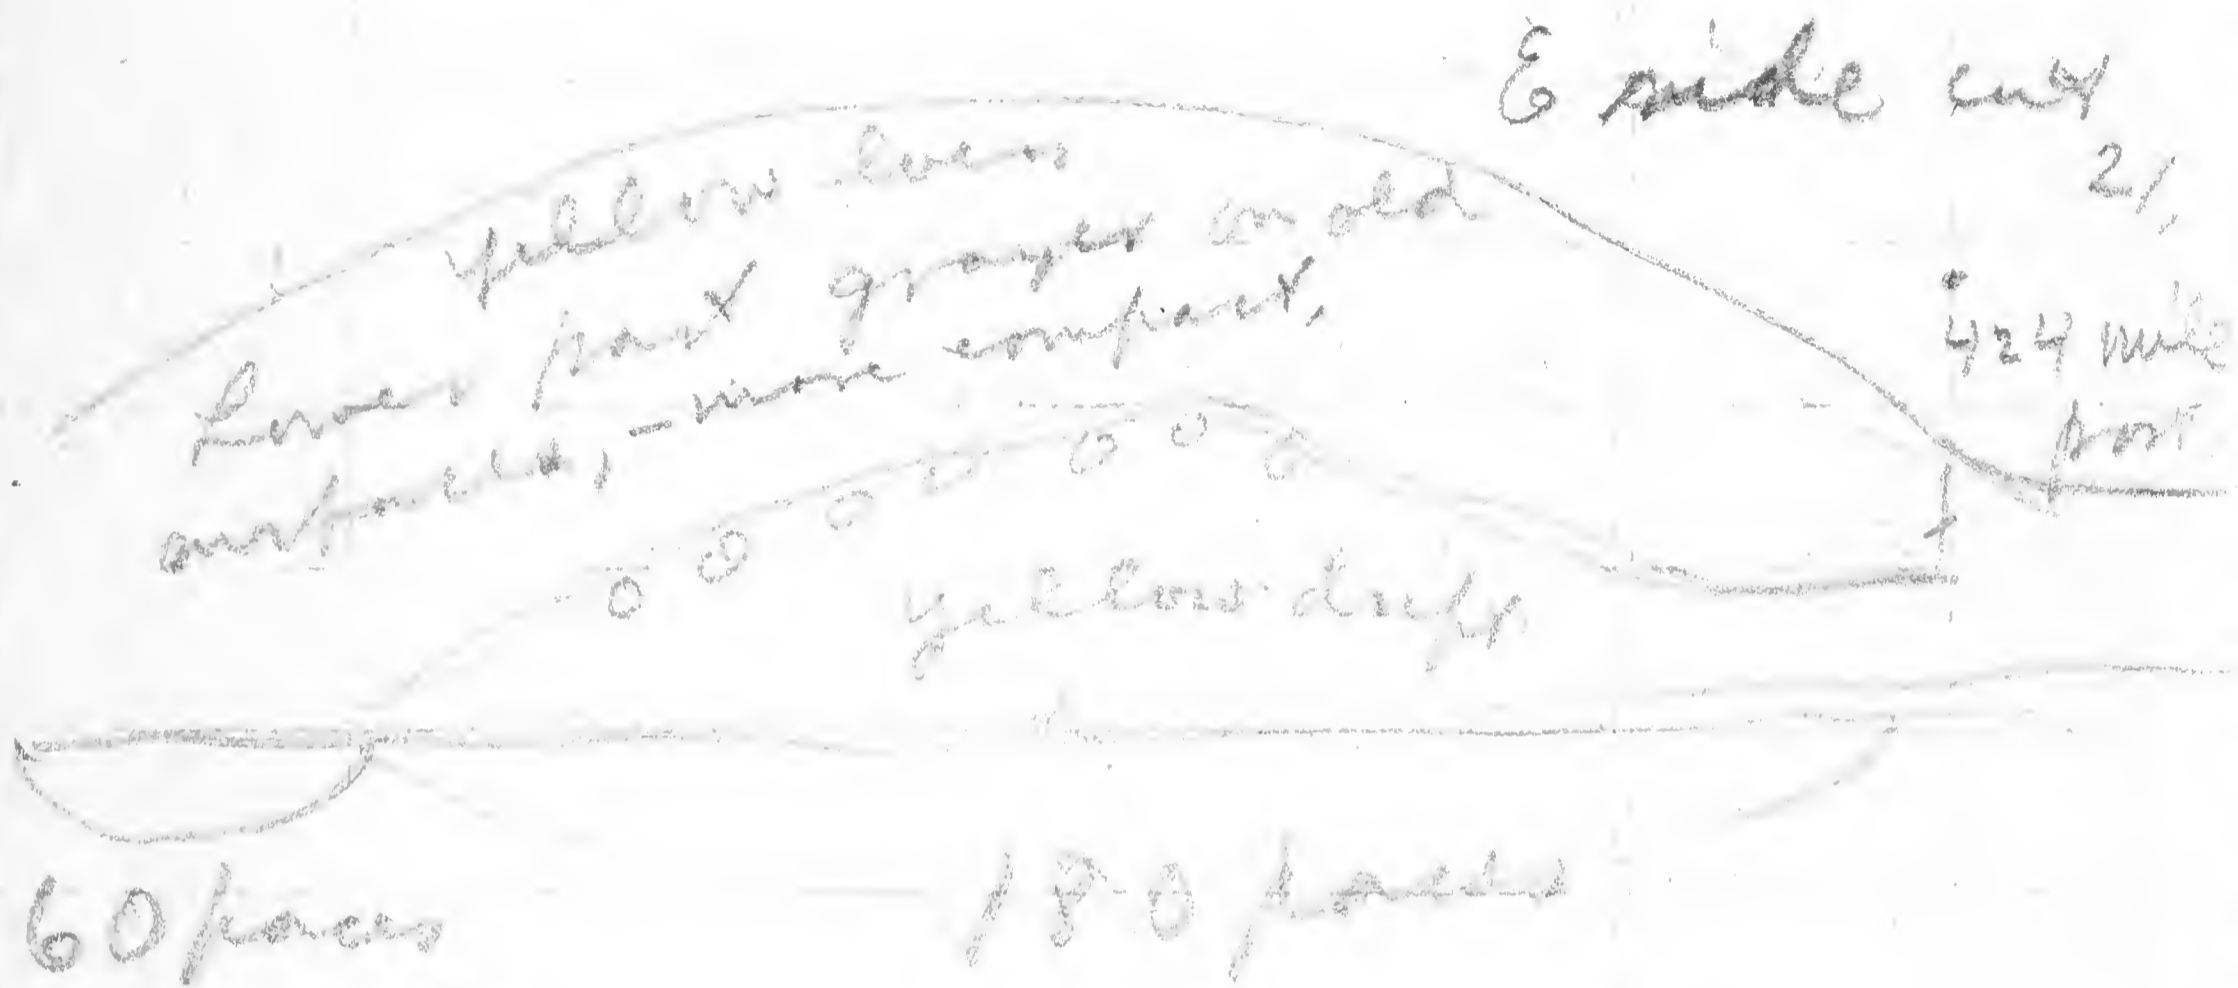 E side cut
21.
yellow loess
Lower part grayer on old
surfaces, - more compact.
424 mile
post
yellow drift
60 paces
180 paces